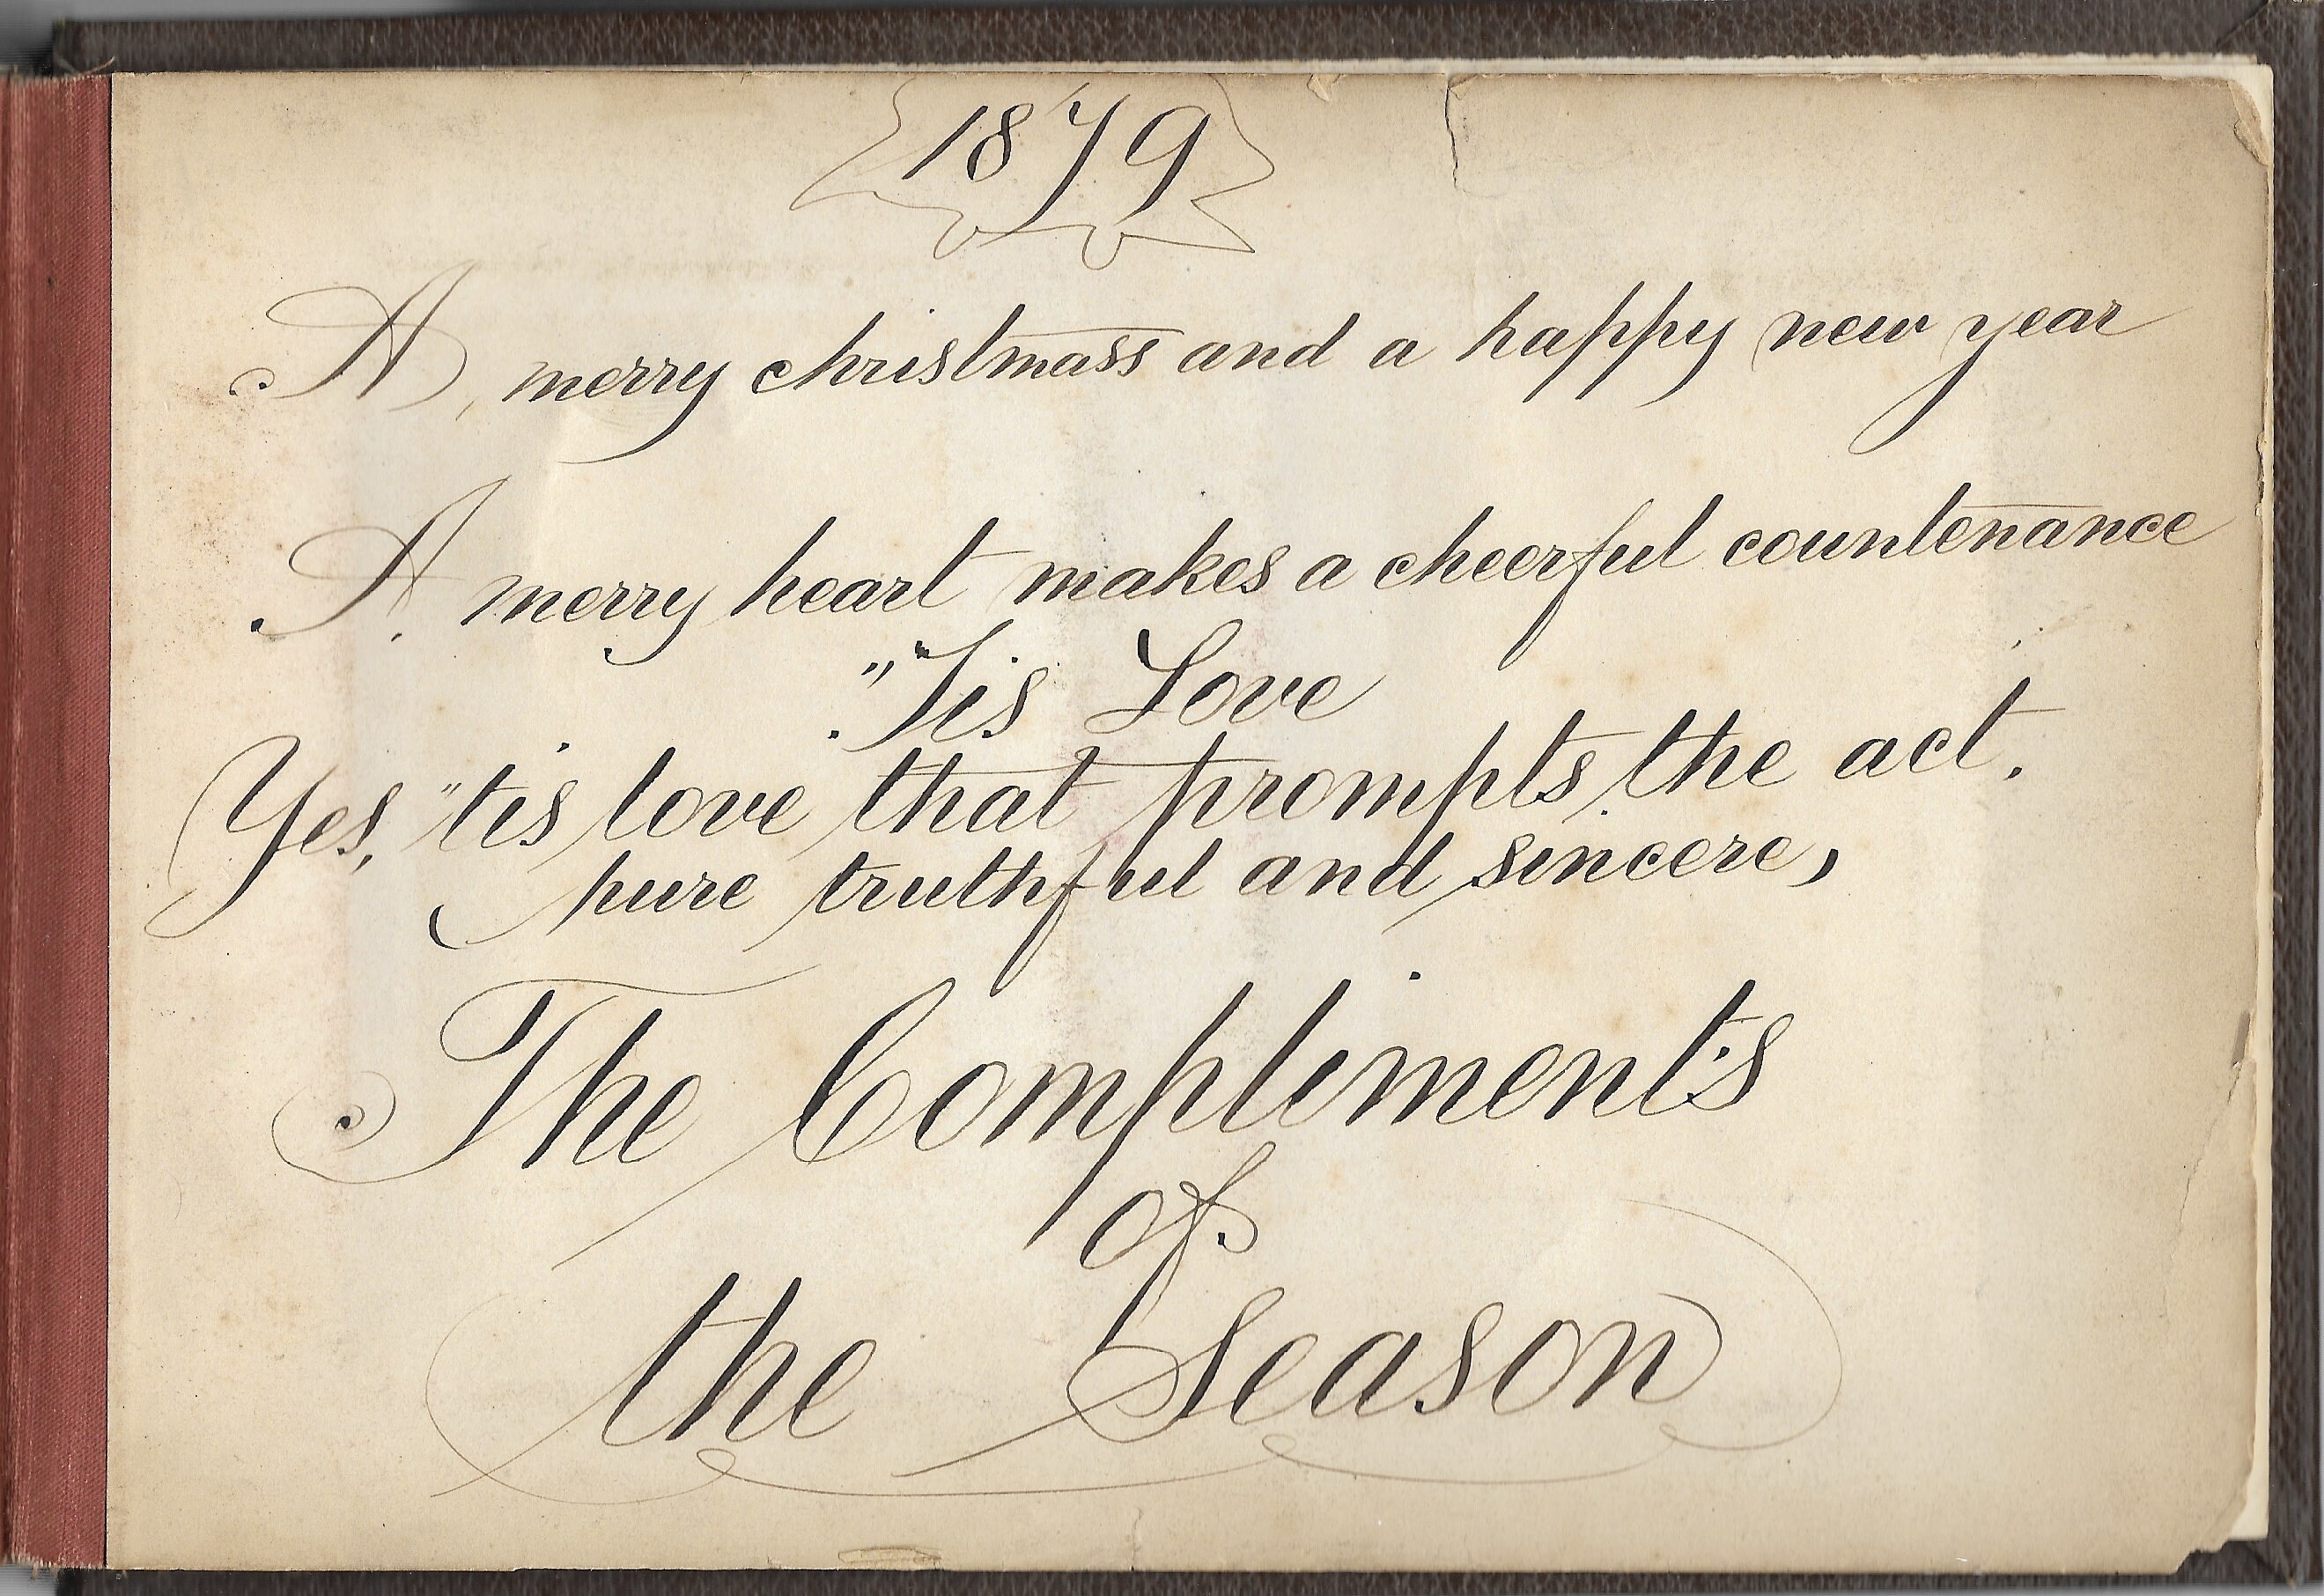 1879
A, merry christmass and a happy new year
A. merry heart makes a cheerful countenance
"Tis Love
Yes, "tis love that prompts the act.
pure truthful and sincere,
The Compliment's
of
the Season